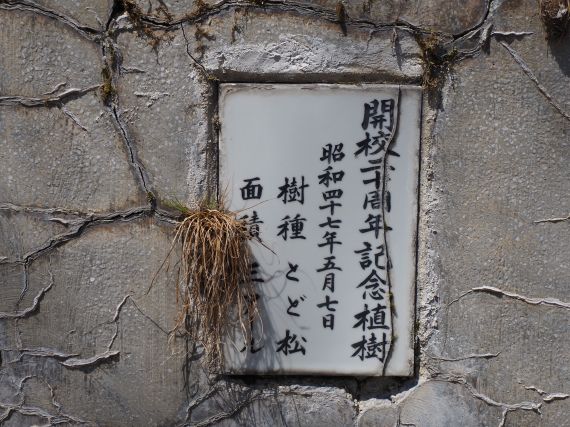 開校二十周年記念植樹
昭和四十七年五月七日
樹種とど松
面積三
ル